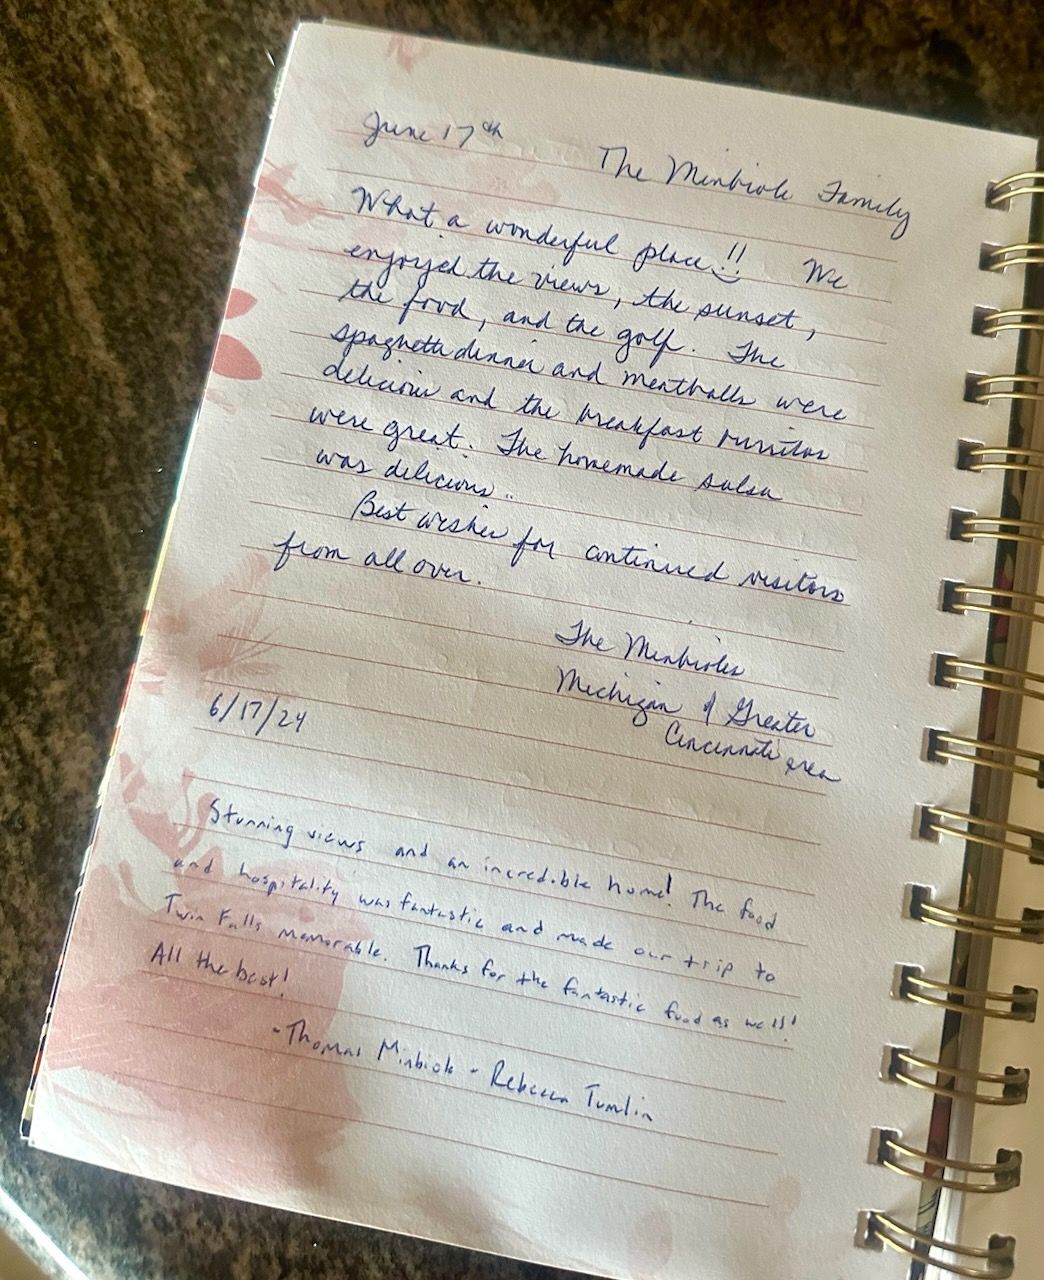 June 17th
The Minbiole Family
What a wonderful place!! We
enjoyed the views, the sunset,
the food, and the golf. The
spaghetti dinner and meatballs were
delicious and the breakfast burritos
were great. The homemade salsa
was delicious..
Best wishes for continued visitors
from all over.
The Minbioles
Michigan & Greater
Cincinnati area
6/17/24
Stunning views and an incredible home! The food
and hospitality was fantastic and made our trip to
Twin Falls memorable. Thanks for the fantastic food as well!
All the best!
-Thomas Minbiole - Rebecca Tumlin